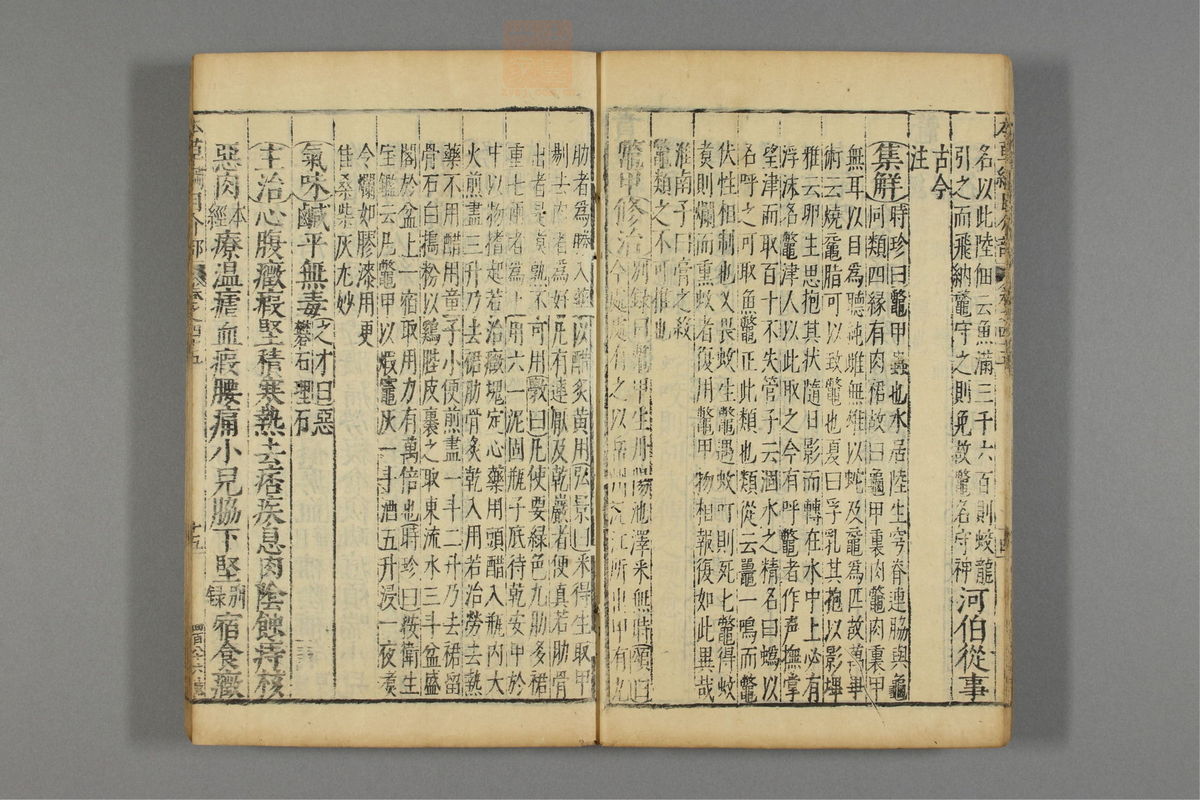 名以此陸佃云魚滿三千六百則蛟龍
引之而飛納鼈守之則免故鼈名守神河伯從事
古今
注
集解時珍曰鼈甲蟲也水居陸生穹脊連脇與龜
同類四縁有肉裙故曰龜甲裏肉鼈肉裏甲
無耳以目為聽純雌無雄以蛇及黿為匹故萬畢
術云燒黿脂可以致鼈也夏曰孚乳其抱以影埤
雅云卵生思抱其狀隨日影而轉在水中上必有
浮沫名鼈津人以此取之今有呼鼈者作声撫掌
望津而取百十不失管子云涸水之精名曰蟡以
名呼之可取魚鼈正此類也類從云鼉一鳴而鼈
伏性相制也又畏蚊生鼈遇蚊叮則死死鼈得蚊
煑則爛而熏蚊者復用鼈甲物相報復如此異哉
淮南子曰膏之殺
鼈類之不可推也
鼈甲修治别録曰鼈甲生丹陽池澤采無時頌曰
今處處有之以岳州沅江所出甲有九
肋者為勝入藥以醋炙黄用弘景曰采得生取甲
剔去肉者為好凡有連厭及乾巖者便真若肋骨
出者是煑熟不可用斅曰凡使要緑色九肋多裙
重七兩者為上用六一泥固瓶子底待乾安甲於
中以物搘起若治癥塊定心藥用頭醋入瓶内大
火煎盡三升乃去裙肋骨炙乾入用若治勞去熱
藥不用醋用童子小便煎盡一斗二升乃去裙留
骨石臼搗粉以鷄䏶皮裹之取東流水三斗盆盛
閣於盆上一宿取用力有萬倍也時珍曰按衛生
宝鑑云乃鼈甲以煆竈灰一斗酒五升浸一夜煑
令爛如膠漆用更
佳桑柴灰尤妙
氣味鹹平無毒之才曰惡
礬石理石
主治心腹癥瘕堅積寒熱去痞疾息肉陰蝕痔核
惡肉本經療温瘧血瘕腰痛小兒脇下堅别録宿食癥